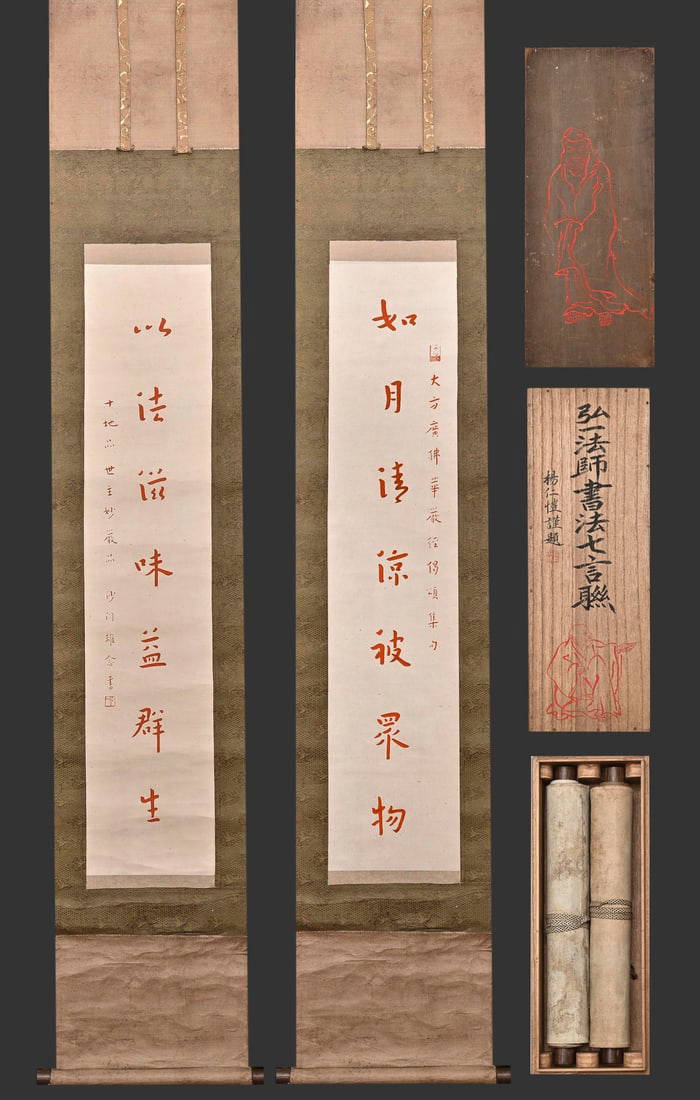 如月清涼被眾物
大方廣佛華嚴經偈頌集句
以法滋味益群生
十地品 世主妙嚴品 沙門 書
弘一法師書法七言聯
楊仁愷謹題